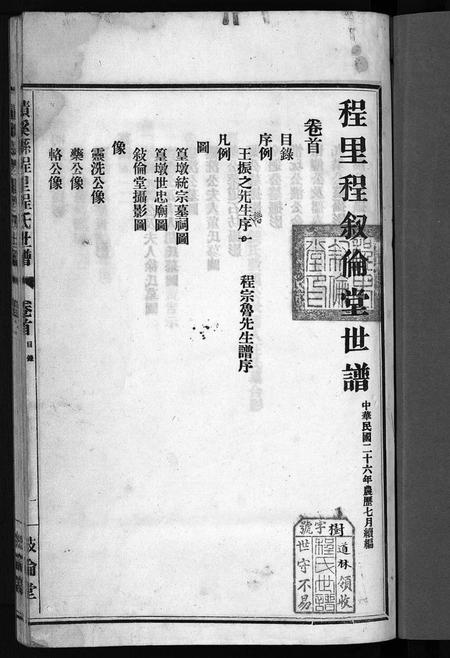 程里程叙倫堂世譜
中華民國二十六年農歷七月續編
樹字號
道林領收
程氏世譜
世守不易
卷首
目錄
序例
王振之先生序 程宗魯先生譜序
凡例
圖
篁墩統宗墓祠圖
篁墩世忠廟圖
敍倫堂攝影圖
像
靈洗公像
藥公像
峈公像
績溪縣程里程氏世譜 卷首 目錄 一 敍倫堂